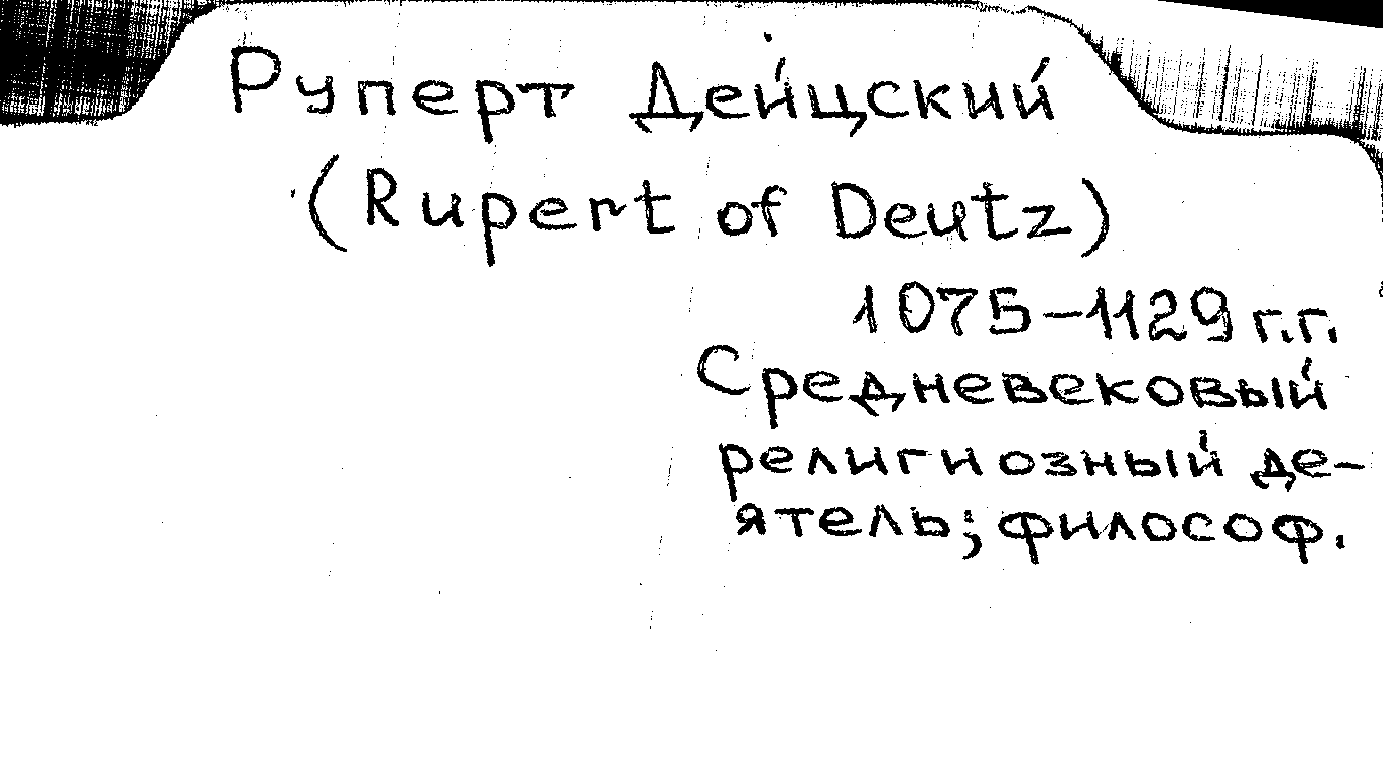 Руперт Дейцский
(Rupert of Deutz)
1075-1129 г.г.
Средневековый
религиозный де-
ятель; философ.